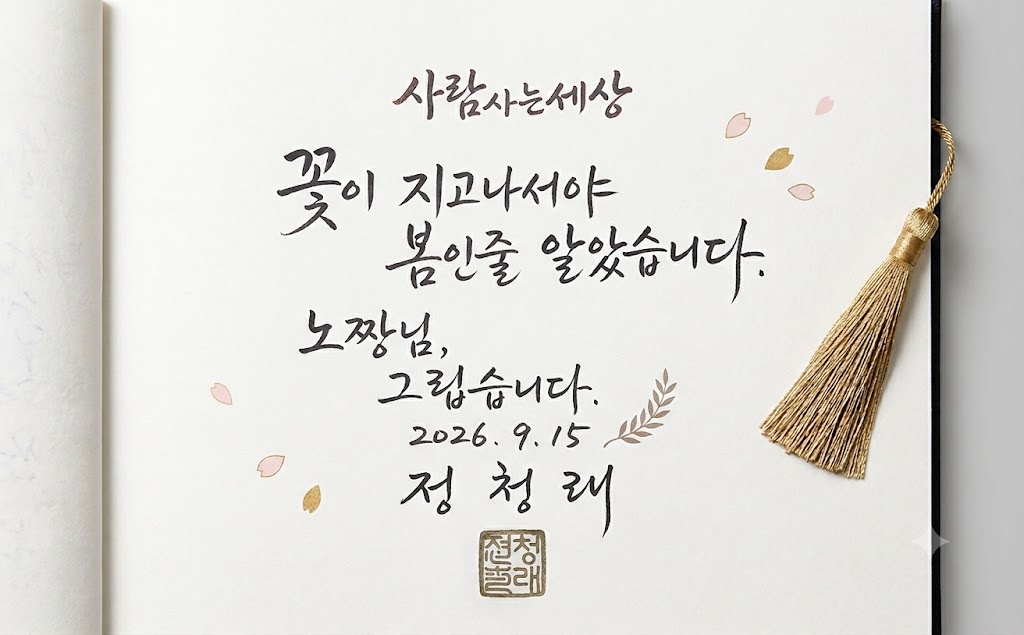 사람사는세상
꽃이 지고나서야
봄인줄 알았습니다.
노짱님,
그립습니다.
2026. 9. 15
정 청 래
청래